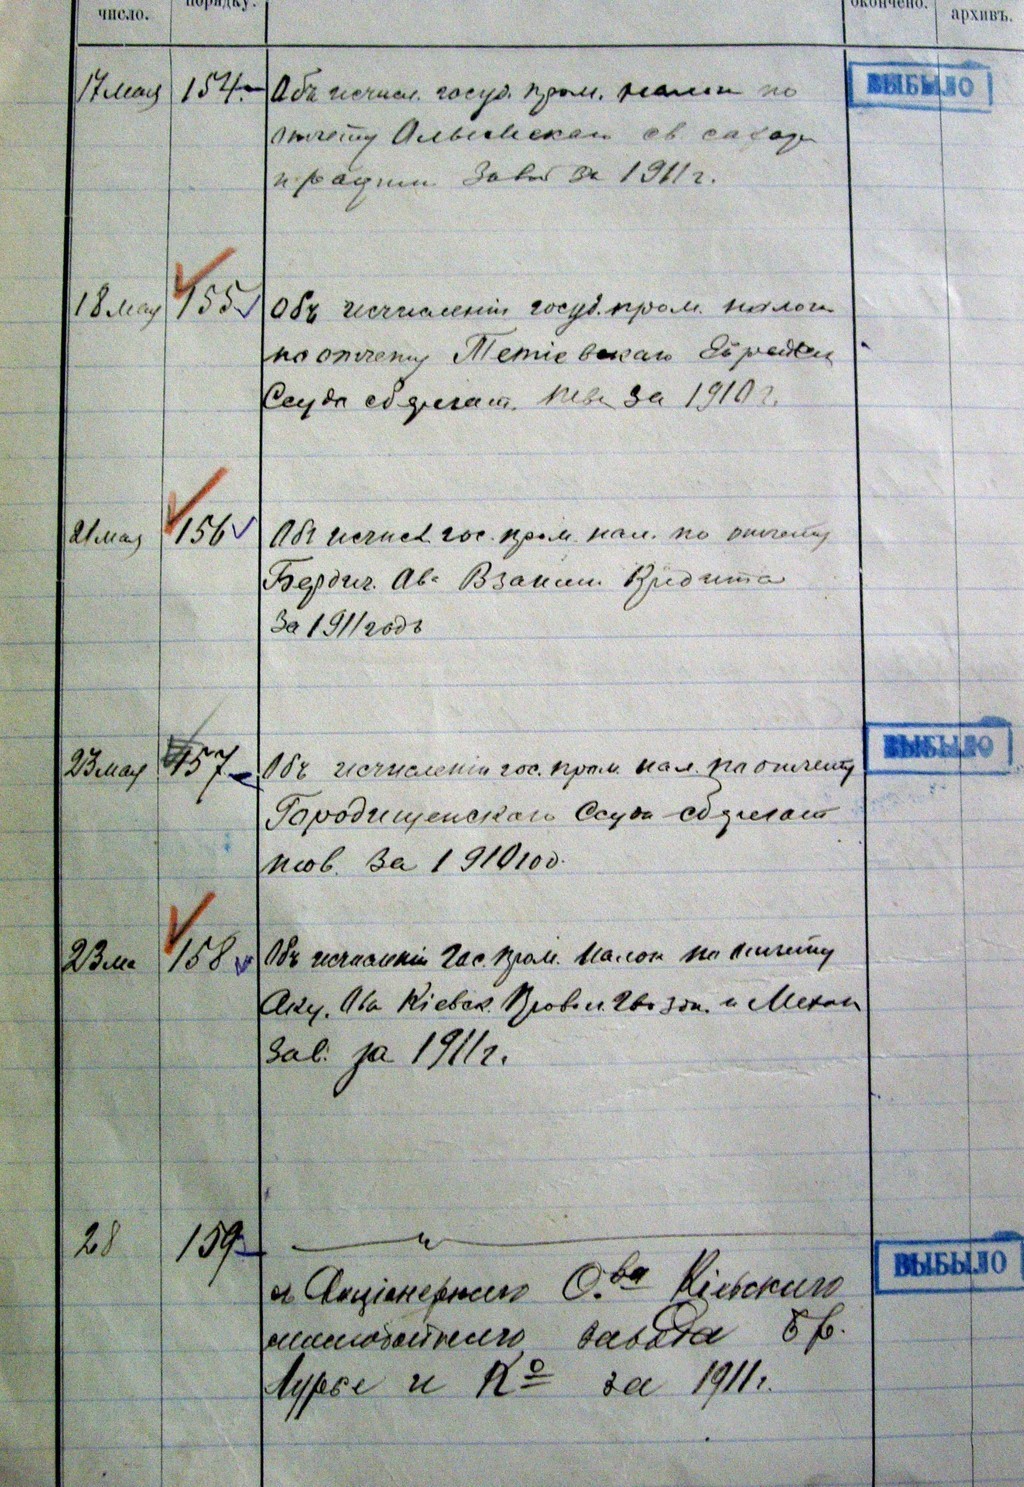 число.
порядку.
окончено.
архивъ.
17 мая 154. Объ исчисл. госуд. пром. налога по
отчету св. сахар
Зав. за 1911 г.
ВЫБЫЛО
18 мая 155 Объ исчисленіи госуд. пром. налога
по отчету Тетіевскаго Еврейск
Ссудо сберегат. тва за 1910 г.
21 мая 156 Объ исчисл. гос. пром. нал. по отчету
Бердич. Ова Взаимн. Кредита
за 1911 годъ
23 мая 157 Объ исчисленіи гос. пром. нал. по отчету
Городищенскаго Ссудо сберегат
тов. за 1910 год.
ВЫБЫЛО
23 ма 158 Объ исчисленіи гос. пром. налога по отчету
Акц. Ова Кіевск. Провол. Гвозд. и Механ
зав. за 1911 г.
28 159
Акціонернаго О.ва Кіевскаго
завода Бр.
и Ко за 1911 г.
ВЫБЫЛО